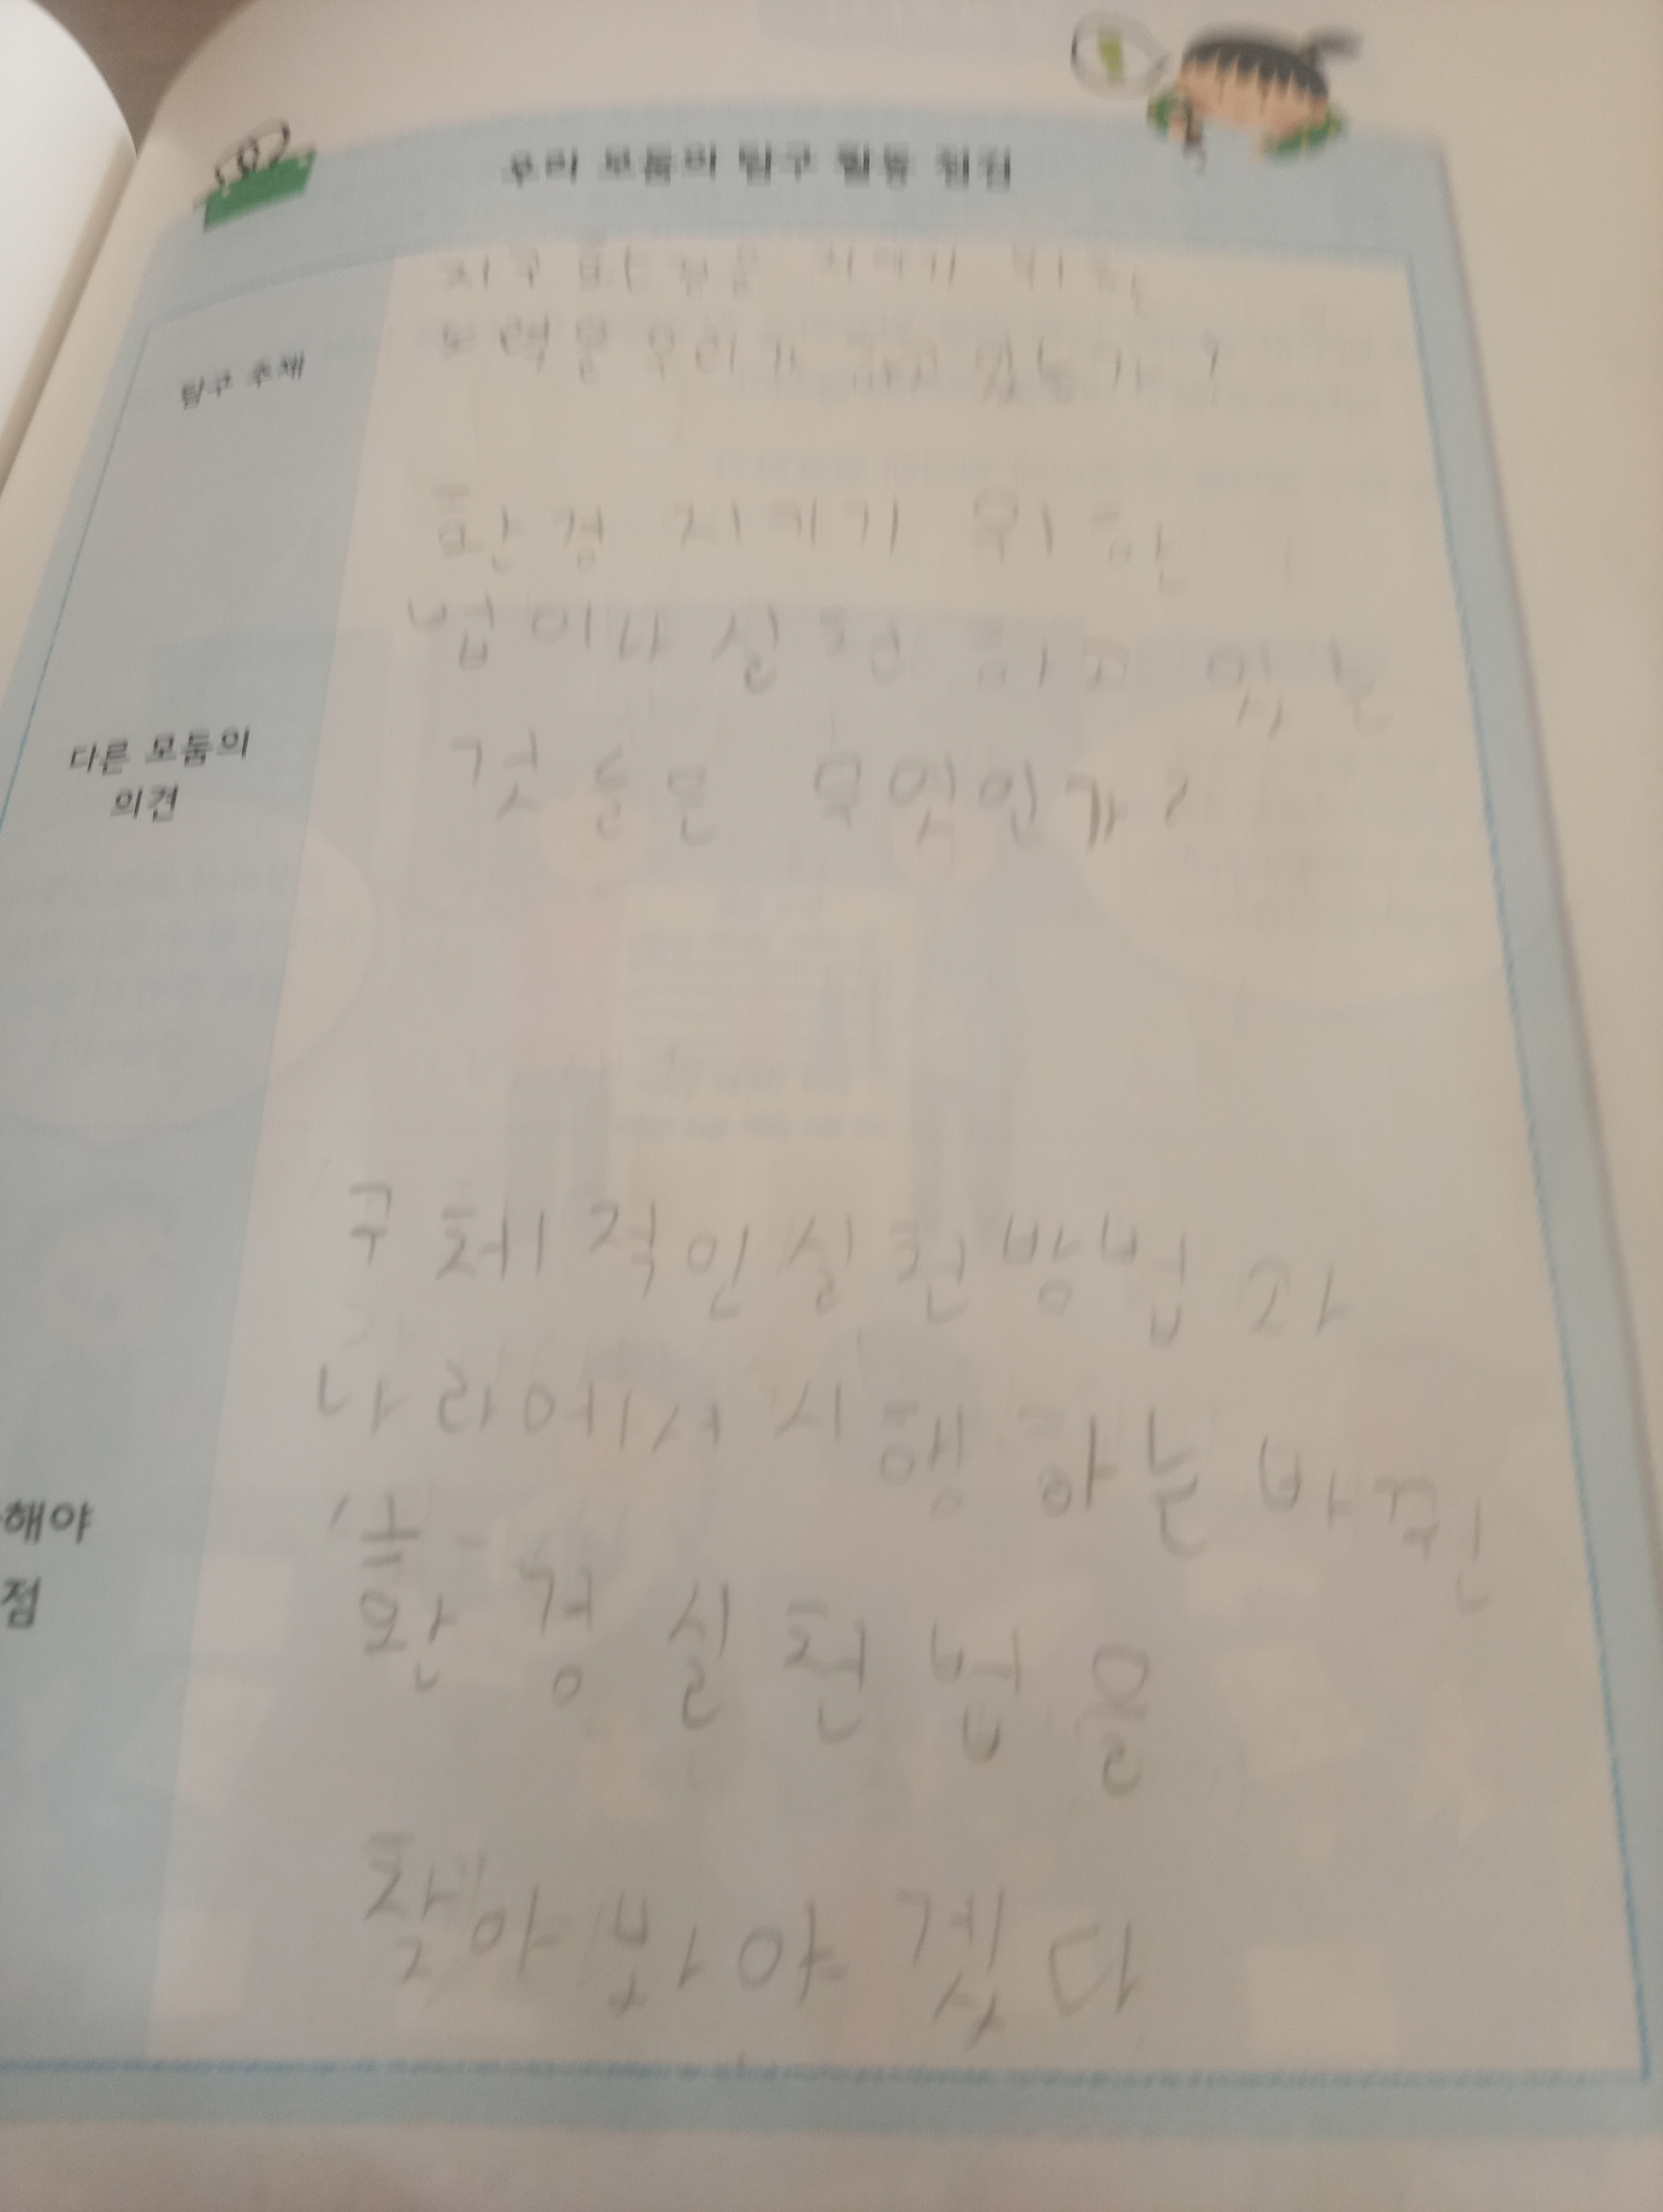 우리 모둠의 탐구 활동 점검
탐구 주제
지구 환경을 지키기 위한
노력을 우리가 하고 있는가?
다른 모둠의
의견
환경 지키기 위한
법이나 실천 하고 있는
것 들은 무엇인가?
해야
점
구체적인 실천방법과
나라에서 시행하는 바뀐
환경실천법을
찾아봐야겠다